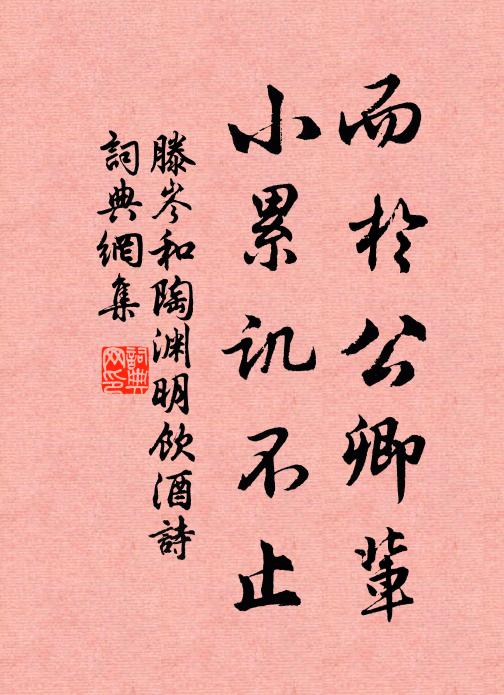 而於公卿輩
小累讥不止
滕岑和陶渊明饮酒詩
詞典網集
詞典
网印